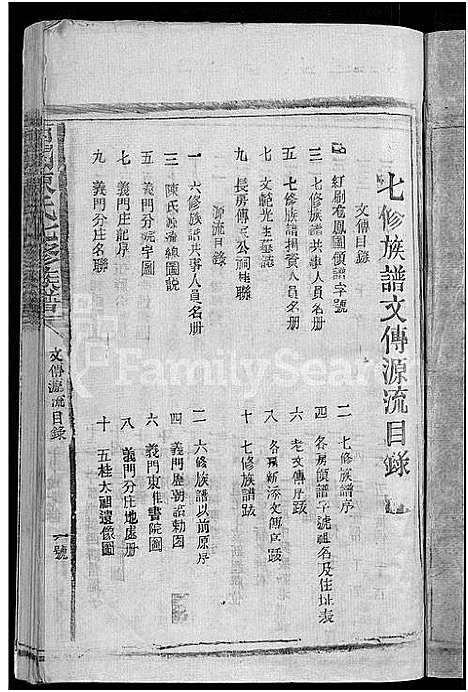 七修族譜文傳源流目錄
文傳目錄
一 紅刷龙鳳圖領譜字號
二 七修族譜序
三 七修族譜共事人員名册
四 各房領譜字號祖名及住址表
五 七修族譜捐資人員名册
六 老文傳序跋
七 文範光
八 各項新添文傳序跋
九 長房傳 公祠 聯
十 七修族譜跋
源流目錄
一 六修族譜共事人員名册
二 六修族譜以前原序
三 陳氏源流線圖說
四 義門歷朝詔勅图
五 義門分院字图
六 義門東佳書院圖
七 義門庄記序
八 義門分庄地處册
九 義門分庄名聯
十 五桂大祖遺像圖
陳氏七修族譜
文傳源流目錄
一號
FamilySearch